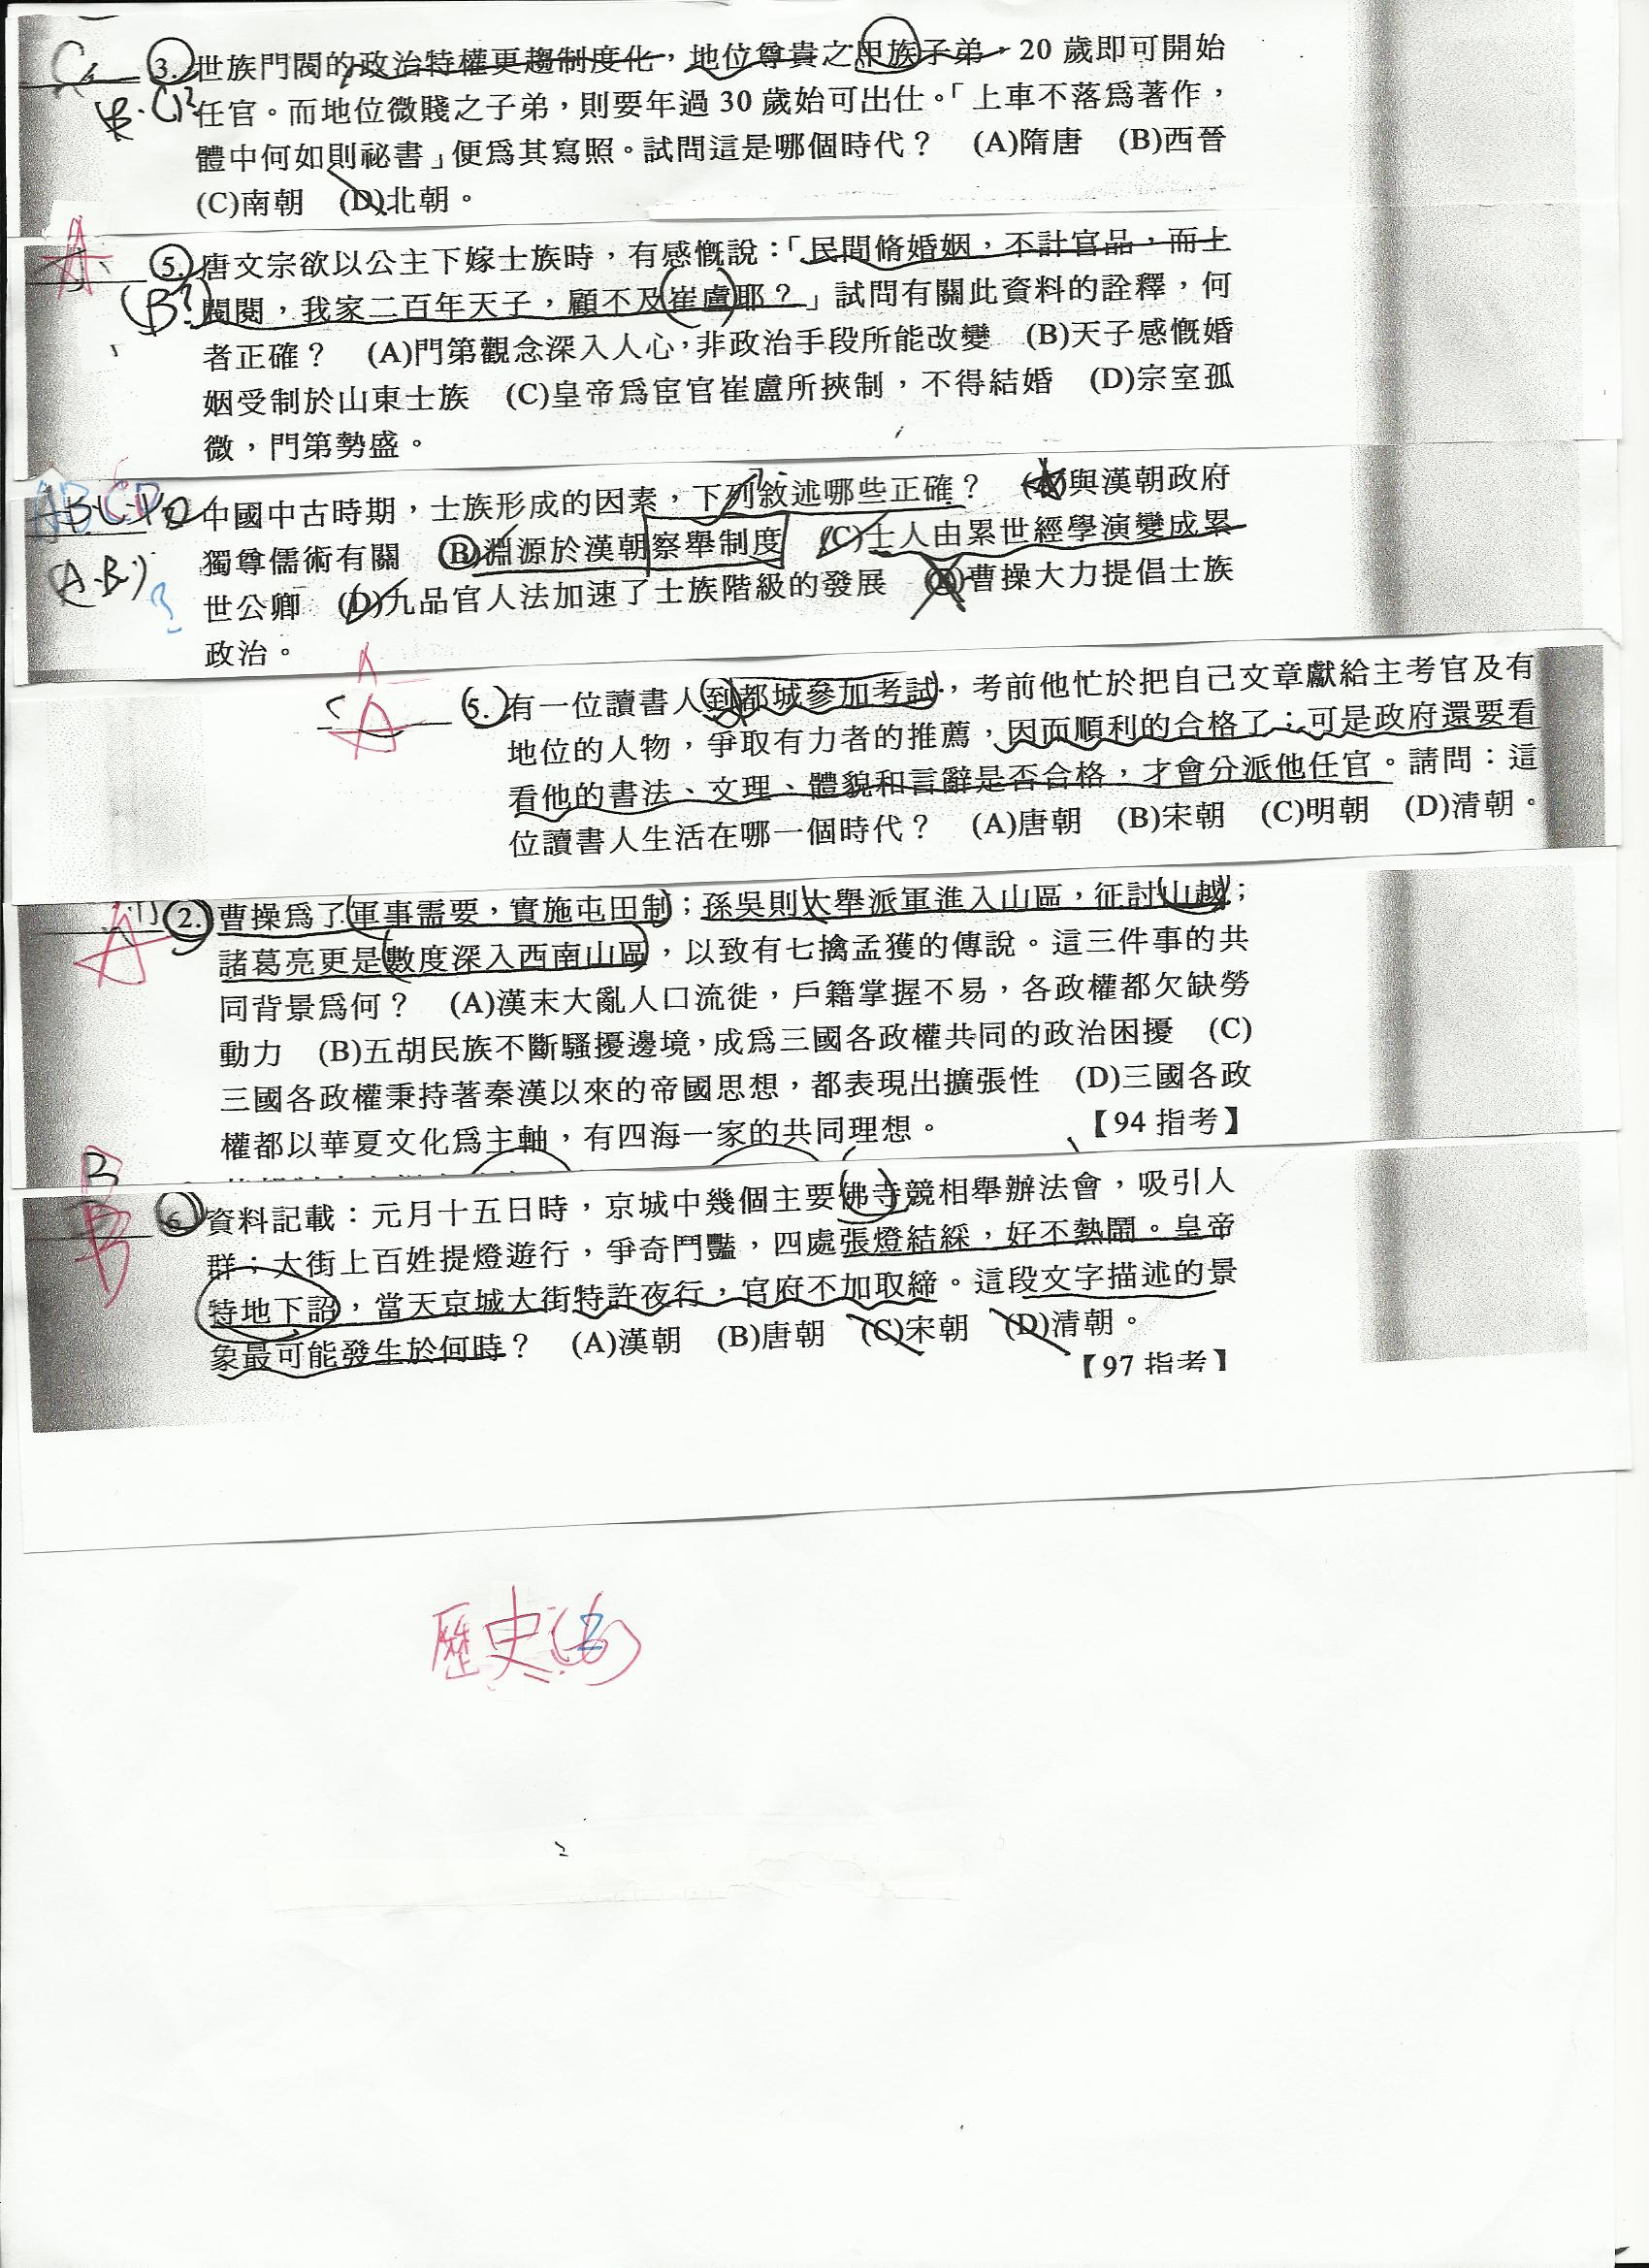 C
3. 世族門閥的政治特權更趨制度化，地位尊貴之甲族子弟，20 歲即可開始
任官。而地位微賤之子弟，則要年過 30 歲始可出仕。「上車不落為著作，
體中何如則祕書」便為其寫照。試問這是哪個時代？ (A)隋唐 (B)西晉
(C)南朝 (D)北朝。
A
5. 唐文宗欲以公主下嫁士族時，有感慨說：「民間脩婚姻，不計官品，而上
(B?) 閥閱，我家二百年天子，顧不及崔盧耶？」試問有關此資料的詮釋，何
者正確？ (A)門第觀念深入人心，非政治手段所能改變 (B)天子感慨婚
姻受制於山東士族 (C)皇帝為宦官崔盧所挾制，不得結婚 (D)宗室孤
微，門第勢盛。
ABCD 中國中古時期，士族形成的因素，下列敘述哪些正確？ (A)與漢朝政府
(A.B.) ? 獨尊儒術有關 (B)淵源於漢朝察舉制度 (C)士人由累世經學演變成累
世公卿 (D)九品官人法加速了士族階級的發展 曹操大力提倡士族
政治。
A
5. 有一位讀書人到都城參加考試，考前他忙於把自己文章獻給主考官及有
地位的人物，爭取有力者的推薦，因而順利的合格了；可是政府還要看
看他的書法、文理、體貌和言辭是否合格，才會分派他任官。請問：這
位讀書人生活在哪一個時代？ (A)唐朝 (B)宋朝 (C)明朝 (D)清朝。
A 2. 曹操為了軍事需要，實施屯田制；孫吳則大舉派軍進入山區，征討山越；
諸葛亮更是數度深入西南山區，以致有七擒孟獲的傳說。這三件事的共
同背景為何？ (A)漢末大亂人口流徙，戶籍掌握不易，各政權都欠缺勞
動力 (B)五胡民族不斷騷擾邊境，成為三國各政權共同的政治困擾 (C)
三國各政權秉持著秦漢以來的帝國思想，都表現出擴張性 (D)三國各政
權都以華夏文化為主軸，有四海一家的共同理想。 【94 指考】
B
B 6. 資料記載：元月十五日時，京城中幾個主要佛寺競相舉辦法會，吸引人
群；大街上百姓提燈遊行，爭奇鬥豔，四處張燈結綵，好不熱鬧。皇帝
特地下詔，當天京城大街特許夜行，官府不加取締。這段文字描述的景
象最可能發生於何時？ (A)漢朝 (B)唐朝 (C)宋朝 (D)清朝。
【97 指考】
歷史